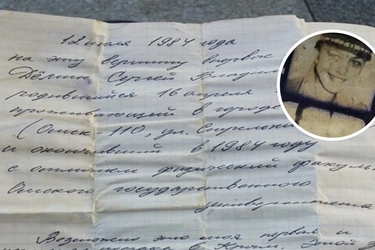 12 июля 1984 года
на эту вершину впервые
Сергей Влади
родившийся 16 апреля
проживающий в городе
(Омск 110, ул.
и окончивший в 1984 году
с отличием физический факуль
Омского государственного
университета
Возможно это моя первая и
в Крым.